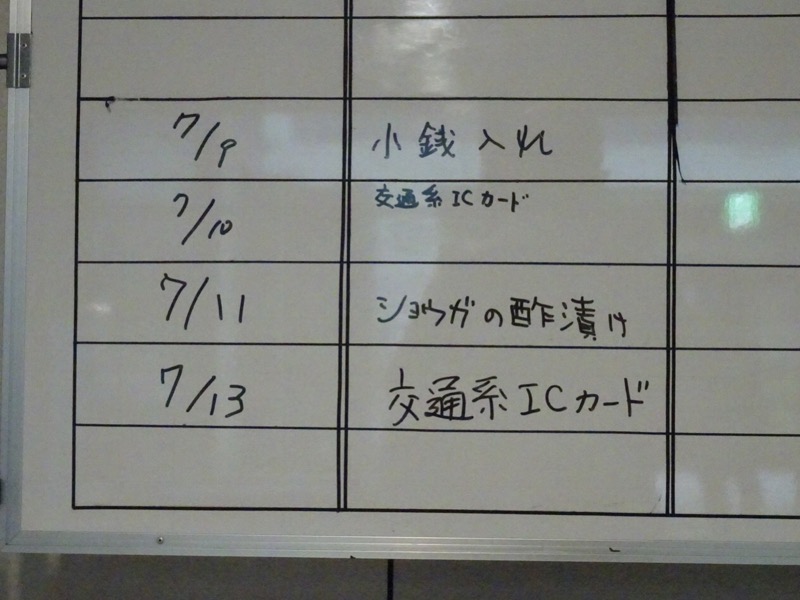 7/9 小銭入れ
7/10 交通系ICカード
7/11 ショウガの酢漬け
7/13 交通系ICカード